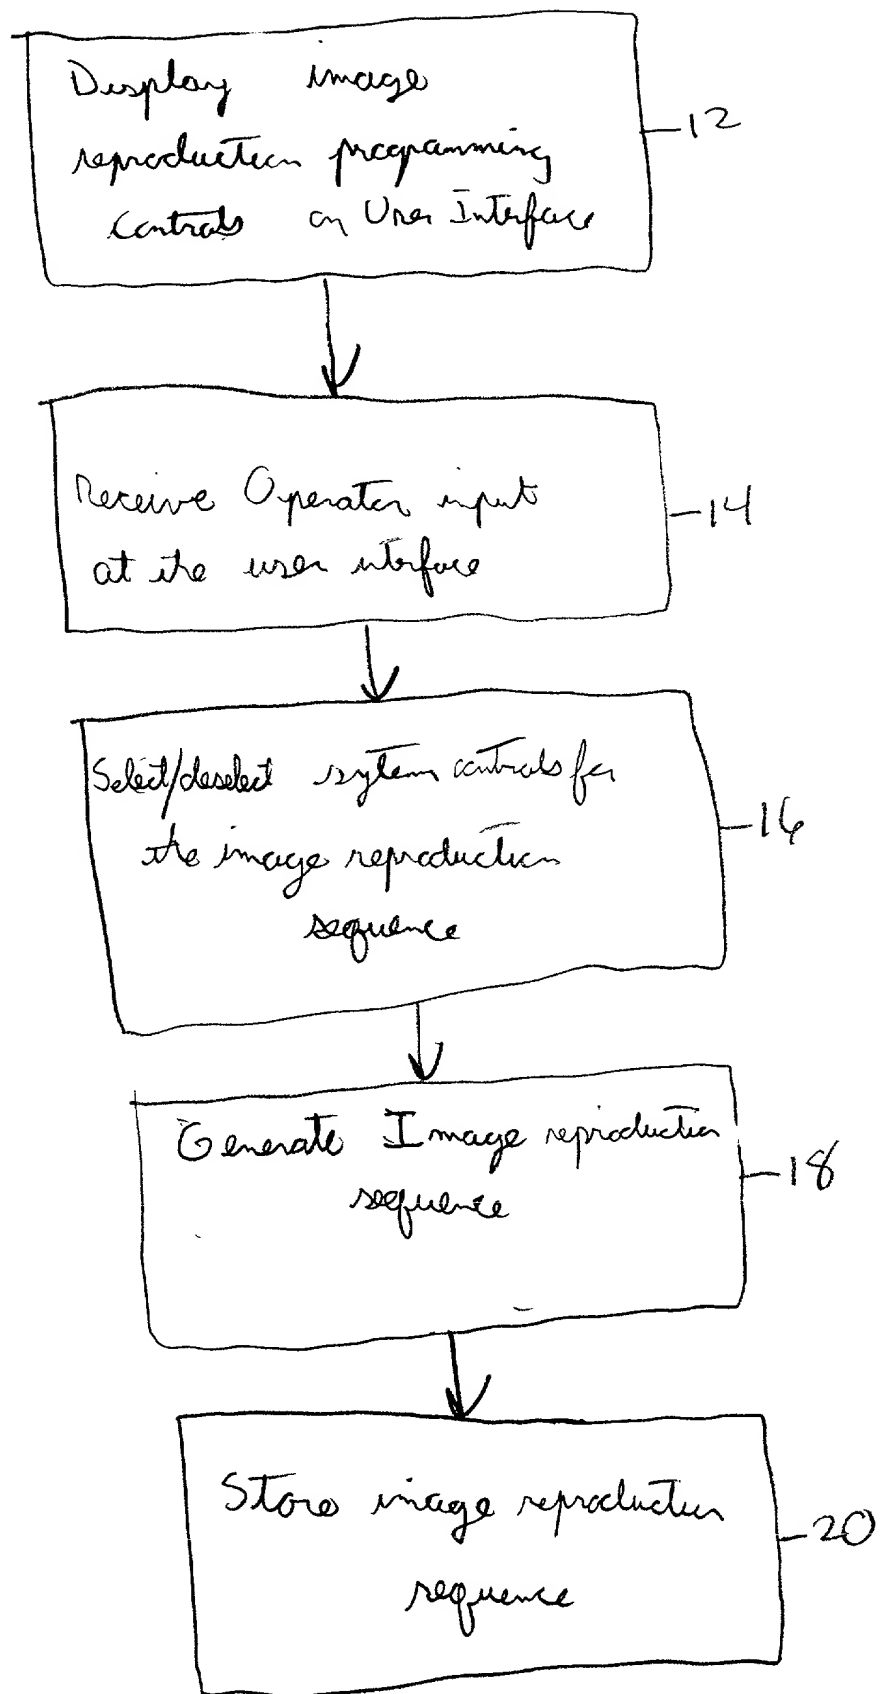 Display image
reproduction programming
controls on User Interface
12
Receive Operator input
at the user interface
14
Select/deselect system controls for
the image reproduction
sequence
16
Generate Image reproduction
sequence
18
Store image reproduction
sequence
20